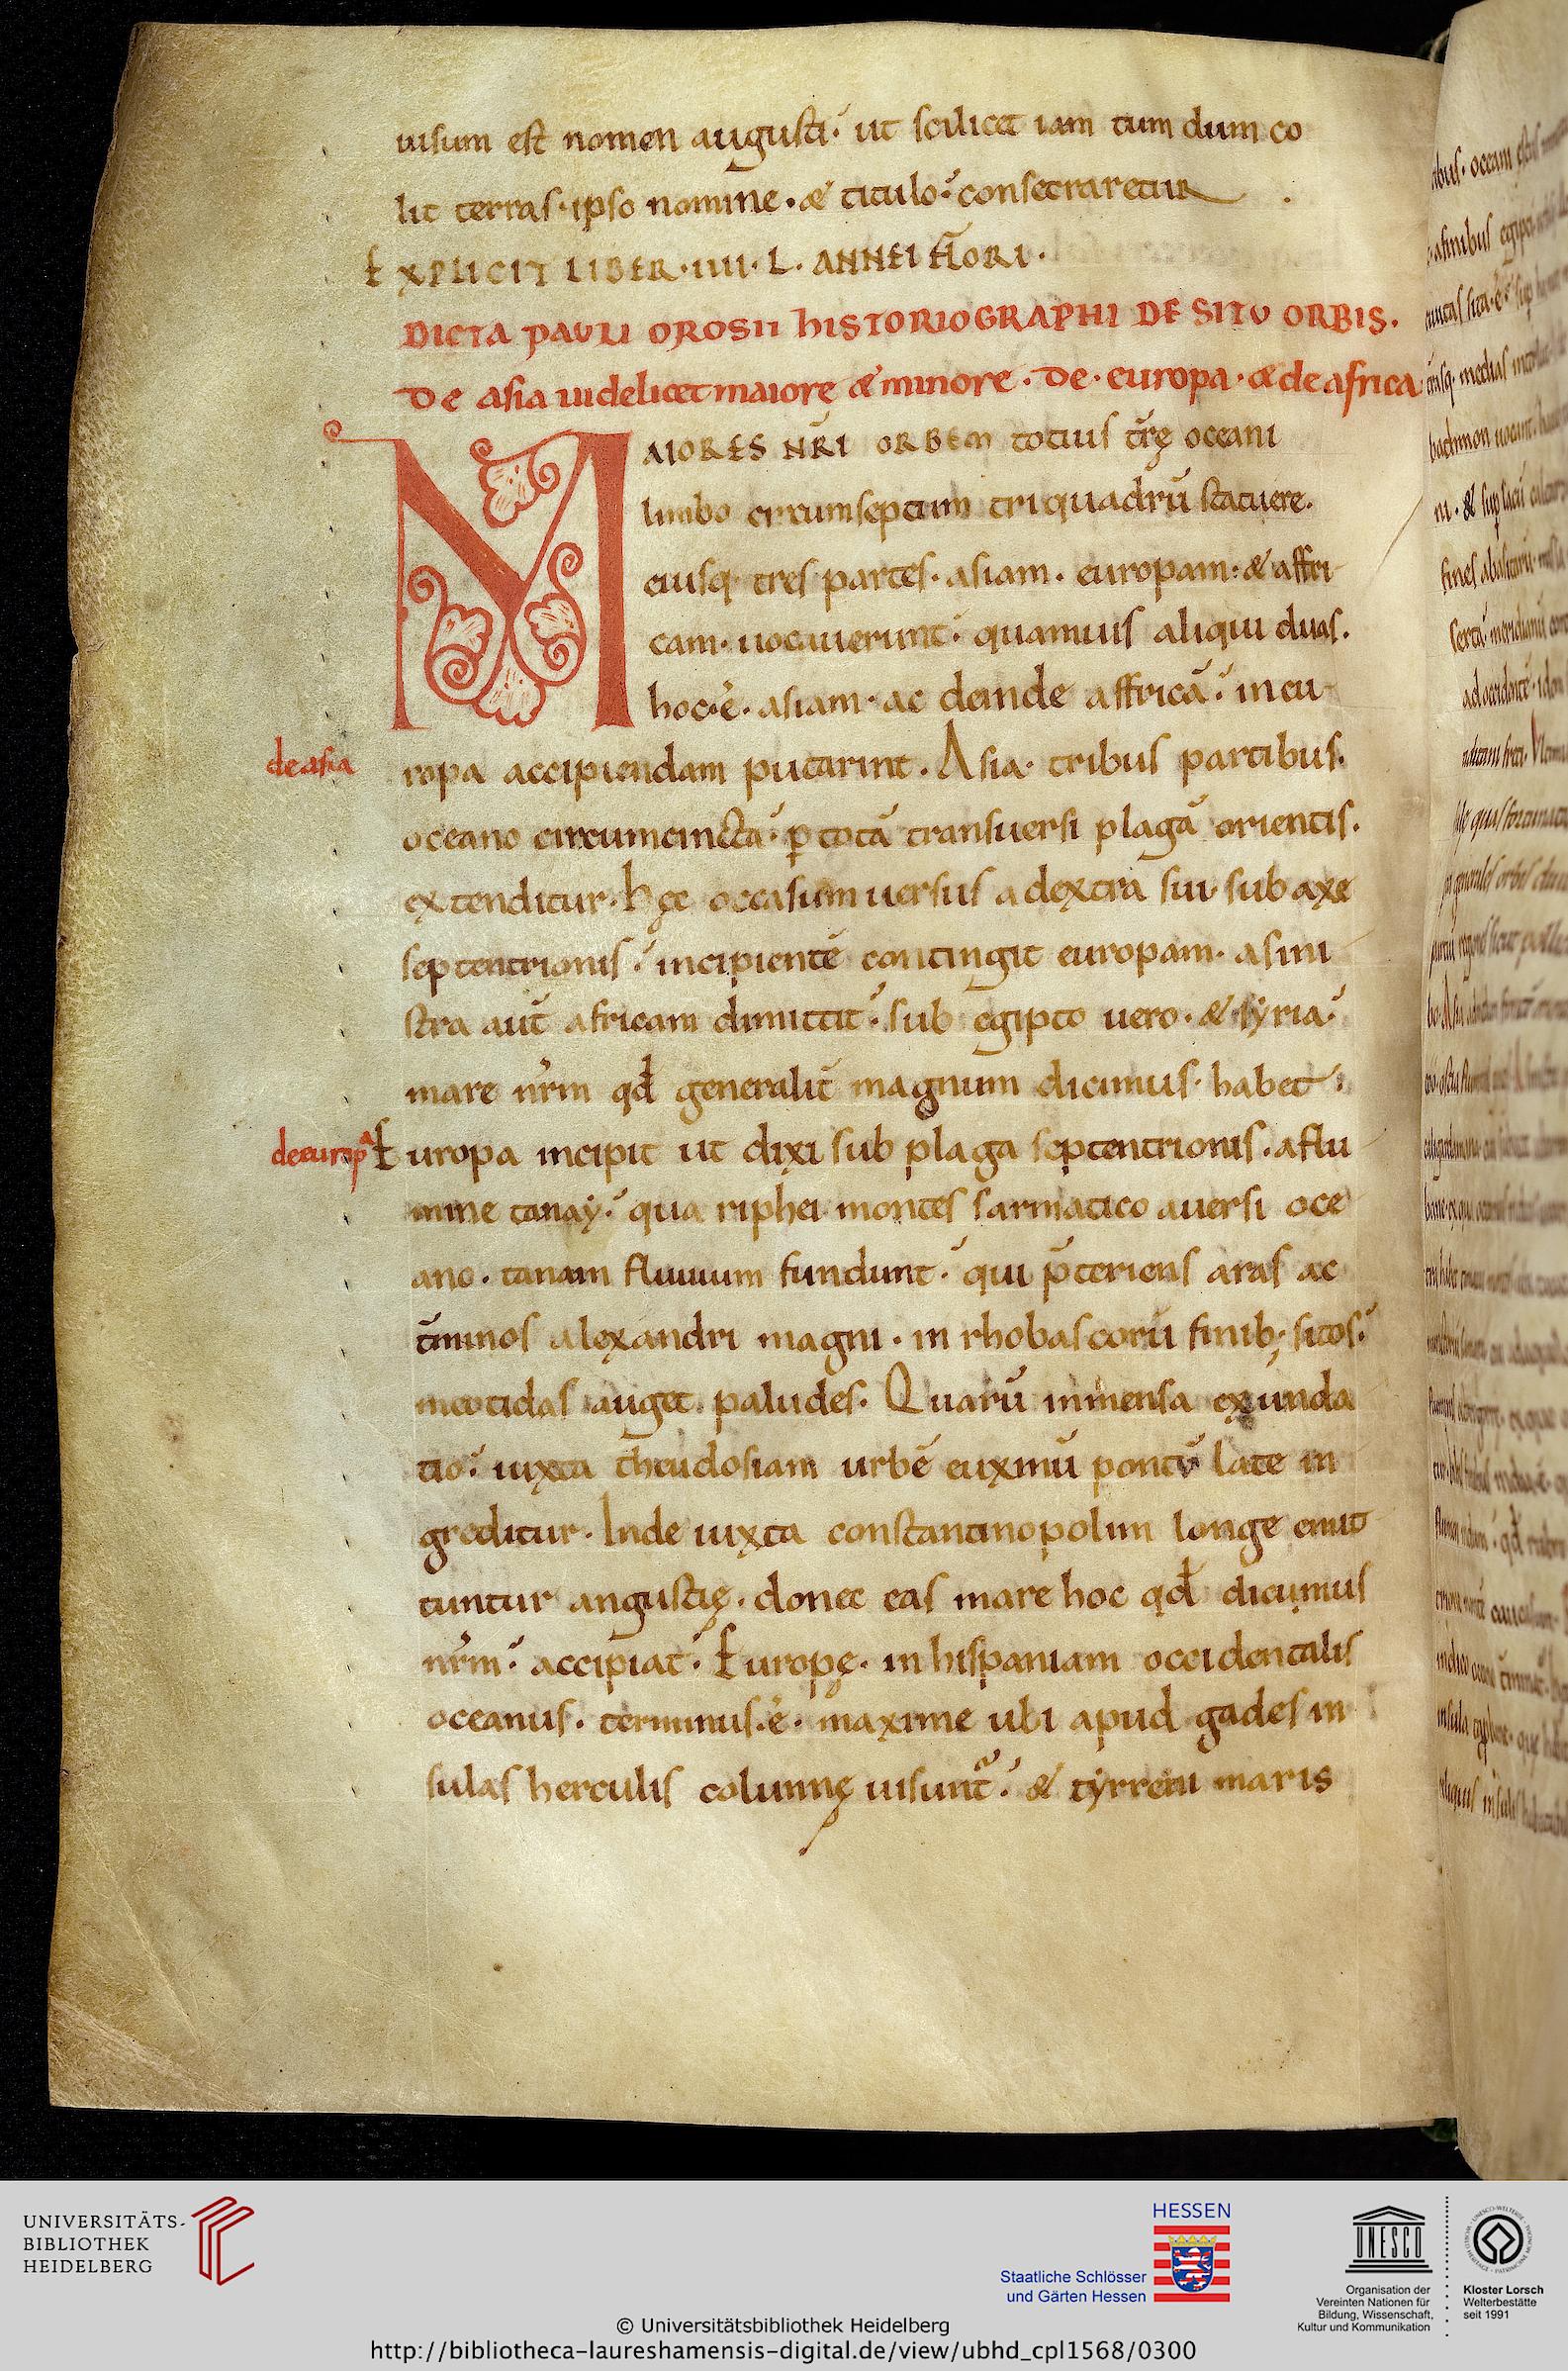 uisum est nomen augusti. ut scilicet iam tum dum co
lit terras. ipso nomine. & titulo. consecraretur.
EXPLICIT LIBER. IIII. L. ANNEI FLORI.
DICTA PAULI OROSII hISTORIOGRAPHI DE SITU ORBIS.
De asia uidelicet maiore & minore. De. europa. & de africa
MAIORES NR̄I ORBEM totius tr̄ę oceani
limbo circumseptum triquadrū statuere.
eiusq. tres partes. asiam. europam. & affri
cam. uocauerunt. quamuis aliqui duas.
hoc. ē. asiam. ac deinde affricā. in eu
de asia
ropa accipiendam putarint. Asia. tribus partibus.
oceano circumcincta. ꝑ totā transuersi plagā orientis.
extenditur. hęc occasum uersus a dextra sui sub axe
septentrionis. incipientē contingit europam. a sini
stra aut̄ africam dimittit. sub egipto uero. & syria.
mare nr̄m qđ generalit̄ magnum dicimus. habet.
de europa
Europa incipit ut dixi sub plaga septentrionis. a flu
mine tanay. qua riphei montes sarmatico auersi oce
ano. tanam fluuium fundunt. qui p̄teriens aras ac
t̄minos alexandri magni. in rhobascorū finib; sitos.
meotidas auget paludes. Quarū inmensa exunda
tio. iuxta theudosiam urbē euxinū pontū late in
greditur. Inde iuxta constantinopolim longe emit
tuntur angustię. donec eas mare hoc qđ dicimus
nr̄m. accipiat. Europę. in hispaniam occidentalis
oceanus. terminus. ē. maxime ubi apud gades in
sulas herculis columnę uisunt̄. & tyrreni maris
UNIVERSITÄTS-
BIBLIOTHEK
HEIDELBERG
HESSEN
Staatliche Schlösser
und Gärten Hessen
UNESCO
Organisation der
Vereinten Nationen für
Bildung, Wissenschaft,
Kultur und Kommunikation
Kloster Lorsch
Welterbestätte
seit 1991
© Universitätsbibliothek Heidelberg
http://bibliotheca-laureshamensis-digital.de/view/ubhd_cpl1568/0300